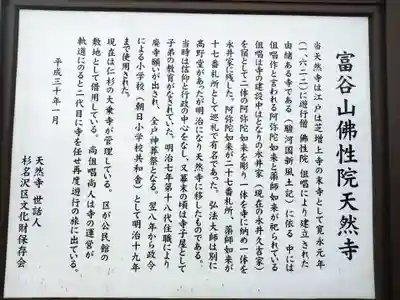 富谷山佛性院天然寺
当天然寺は江戸は芝増上寺の末寺として寛永元年
(一、六二二)に遊行僧 佛性院 但唱により建立された
由緒ある寺である(駿河国新風土記)に依る 中には
但唱作と言われる阿弥陀如来と薬師如来が祀られている
但唱は寺の建設中はとなりの永井家(現在の永井久吉家)
を宿として二体の阿弥陀如来を彫り一体を寺に納め一体を
永井家に残した。阿弥陀如来が二十七番札所、薬師如来が
十七番札所として巡礼で有名であった。弘法大師は別に
高野堂があったが明治になり天然寺に移したものである。
当時は信仰と行政の中心をなし、又幕末の頃は寺子屋として
子弟の教育がなされていた。明治七年第十八代住職により
廃寺願いが出され、全戸神葬祭となる。翌八年から政令
による小学校(朝日小学校共和舎)として明治十九年
まで使用された。
現在は仁杉の大乗寺が管理している。区が公民館の
敷地として借用している。尚但唱尚人は寺の運営が
軌道にのると二代目に寺を任せ再度遊行の旅に出ている。
平成三十年一月
天然寺 世話人
杉名沢区文化財保存会